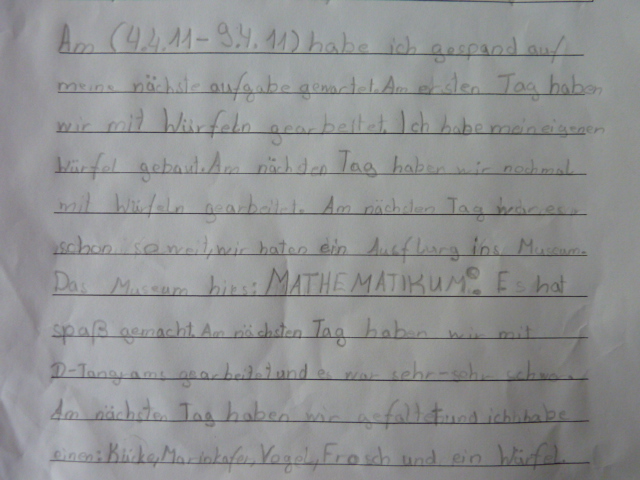 Am (4.4.11-9.4.11) habe ich gespand auf
meine nächste aufgabe gewartet. Am ersten Tag haben
wir mit Würfeln gearbeitet. Ich habe mein eigenen
Würfel gebaut. Am nächsten Tag haben wir nochmal
mit Würfeln gearbeitet. Am nächsten Tag war es
schon so weit, wir haten ein Ausflurg ins Museum.
Das Museum hies: MATHEMATIKUM. Es hat
spaß gemacht. Am nächsten Tag haben wir mit
D-Tangrams gearbeitet und es war sehr-sehr
Am nächsten Tag haben wir gefaltet und ich habe
einen: Kücke, Marinkäfer, Vogel, Frosch und ein Würfel.